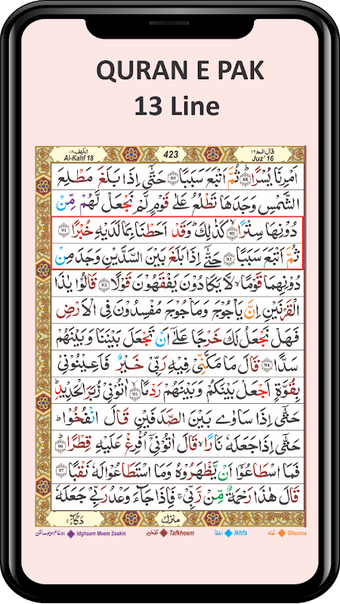 QURAN E PAK
13 Line
الكهف ١٨
Al-Kahf 18
423
قال الم ١٦
Juz' 16
اَمْرِنَا يُسْرًا ﴿88﴾ ثُمَّ اَتْبَعَ سَبَبًا ﴿89﴾ حَتّٰۤى اِذَا بَلَغَ مَطْلِعَ
الشَّمْسِ وَجَدَهَا تَطْلُعُ عَلٰى قَوْمٍ لَّمْ نَجْعَلْ لَّهُمْ مِّنْ
دُوْنِهَا سِتْرًا ﴿90﴾ كَذٰلِكَ ؕ وَقَدْ اَحَطْنَا بِمَا لَدَيْهِ خُبْرًا ﴿91﴾
ثُمَّ اَتْبَعَ سَبَبًا ﴿92﴾ حَتّٰۤى اِذَا بَلَغَ بَيْنَ السَّدَّيْنِ وَجَدَ مِنْ
دُوْنِهِمَا قَوْمًا ۙ لَّا يَكَادُوْنَ يَفْقَهُوْنَ قَوْلًا ﴿93﴾ قَالُوْا يٰذَا
الْقَرْنَيْنِ اِنَّ يَاْجُوْجَ وَمَاْجُوْجَ مُفْسِدُوْنَ فِى الْاَرْضِ
فَهَلْ نَجْعَلُ لَكَ خَرْجًا عَلٰۤى اَنْ تَجْعَلَ بَيْنَنَا وَبَيْنَهُمْ
سَدًّا ﴿94﴾ قَالَ مَا مَكَّنِّىْ فِيْهِ رَبِّىْ خَيْرٌ فَاَعِيْنُوْنِىْ
بِقُوَّةٍ اَجْعَلْ بَيْنَكُمْ وَبَيْنَهُمْ رَدْمًا ﴿95﴾ اٰتُوْنِىْ زُبَرَ الْحَدِيْدِ ؕ
حَتّٰۤى اِذَا سَاوٰى بَيْنَ الصَّدَفَيْنِ قَالَ انْفُخُوْا ؕ
حَتّٰۤى اِذَا جَعَلَهٗ نَارًا ۙ قَالَ اٰتُوْنِىْۤ اُفْرِغْ عَلَيْهِ قِطْرًا ﴿96﴾
فَمَا اسْطَاعُوْۤا اَنْ يَّظْهَرُوْهُ وَمَا اسْتَطَاعُوْا لَهٗ نَقْبًا ﴿97﴾
قَالَ هٰذَا رَحْمَةٌ مِّنْ رَّبِّىْ ۚ فَاِذَا جَآءَ وَعْدُ رَبِّىْ جَعَلَهٗ
منزل
دَكَّآءَ
Idghaam Meem Saakin
Tafkheem
Ikhfa
Ghunna